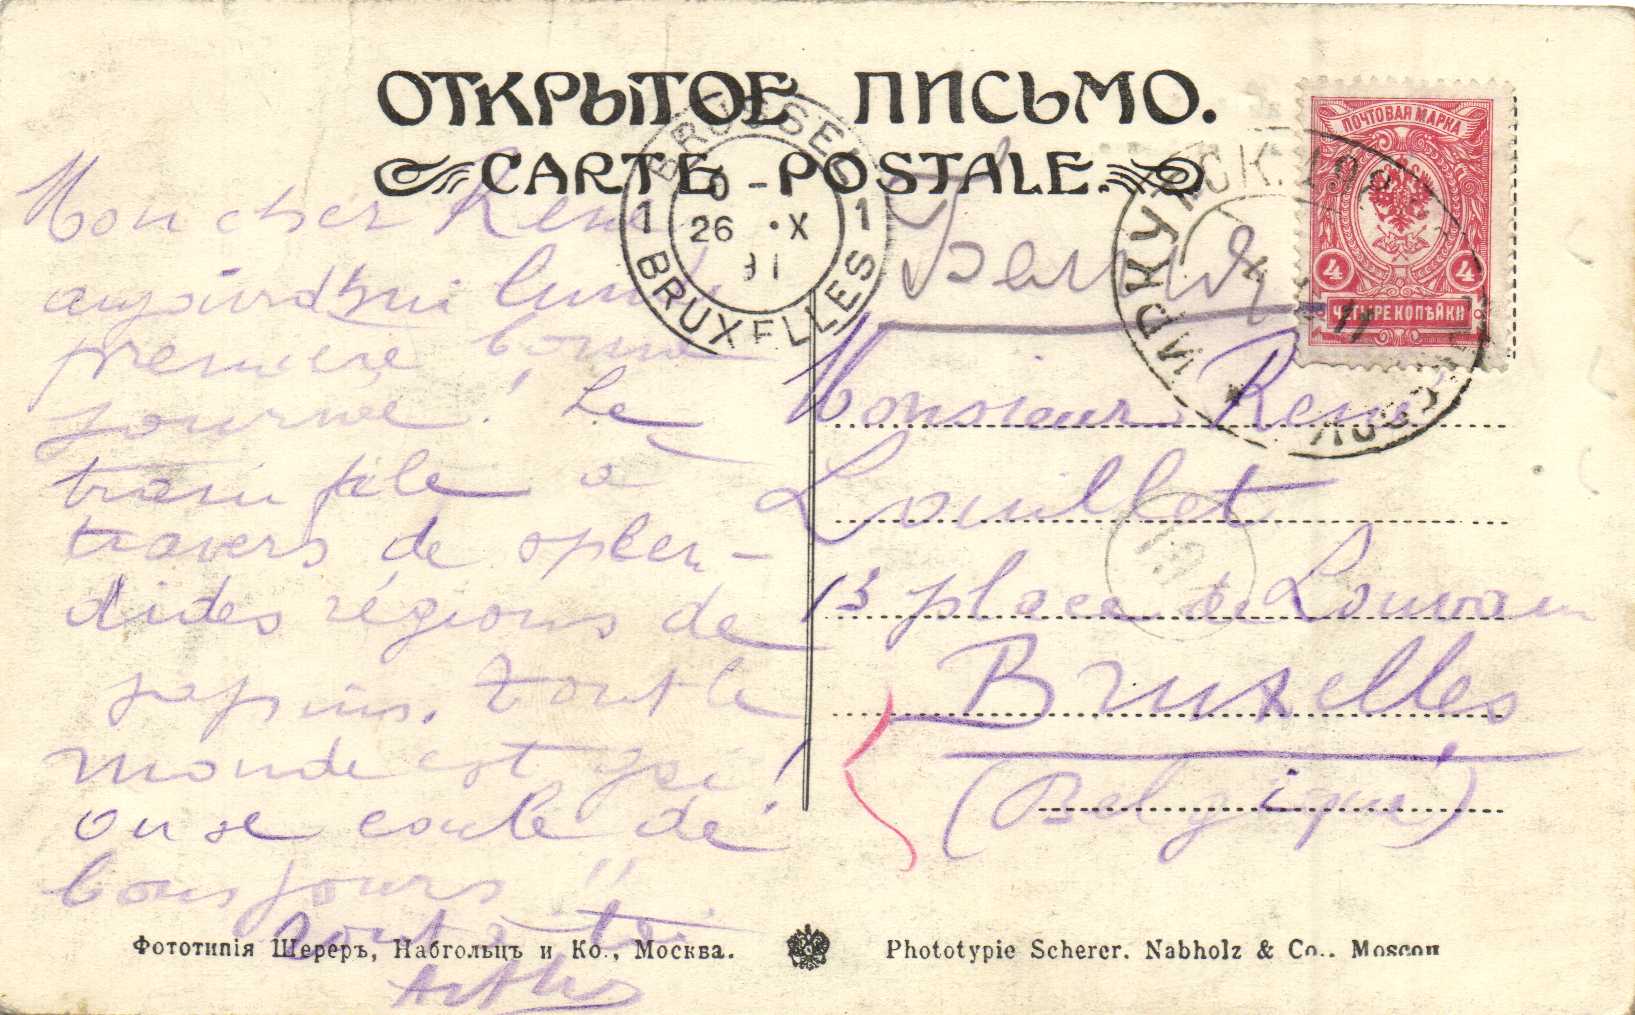 ОТКРЫТОЕ ПИСЬМО.
CARTE POSTALE.
ПОЧТОВАЯ МАРКА
4 4
ЧЕТЫРЕ КОПѢЙКИ
BRUSSEL
1 26 X 1
BRUXELLES
ИРКУТСК.
Mon cher René
aujourd'hui lundi
première bonne
journée! Le
train file à
travers de splen-
dides régions de
sapins. Tout le
monde est gai!
on se coule de
bons jours!!
tout à toi
Arthur
Monsieur René
Louillet
13 place de Louvain
Bruxelles
(Belgique)
Фототипія Шереръ, Набгольцъ и Ко., Москва.
Phototypie Scherer. Nabholz & Co.. Moscou